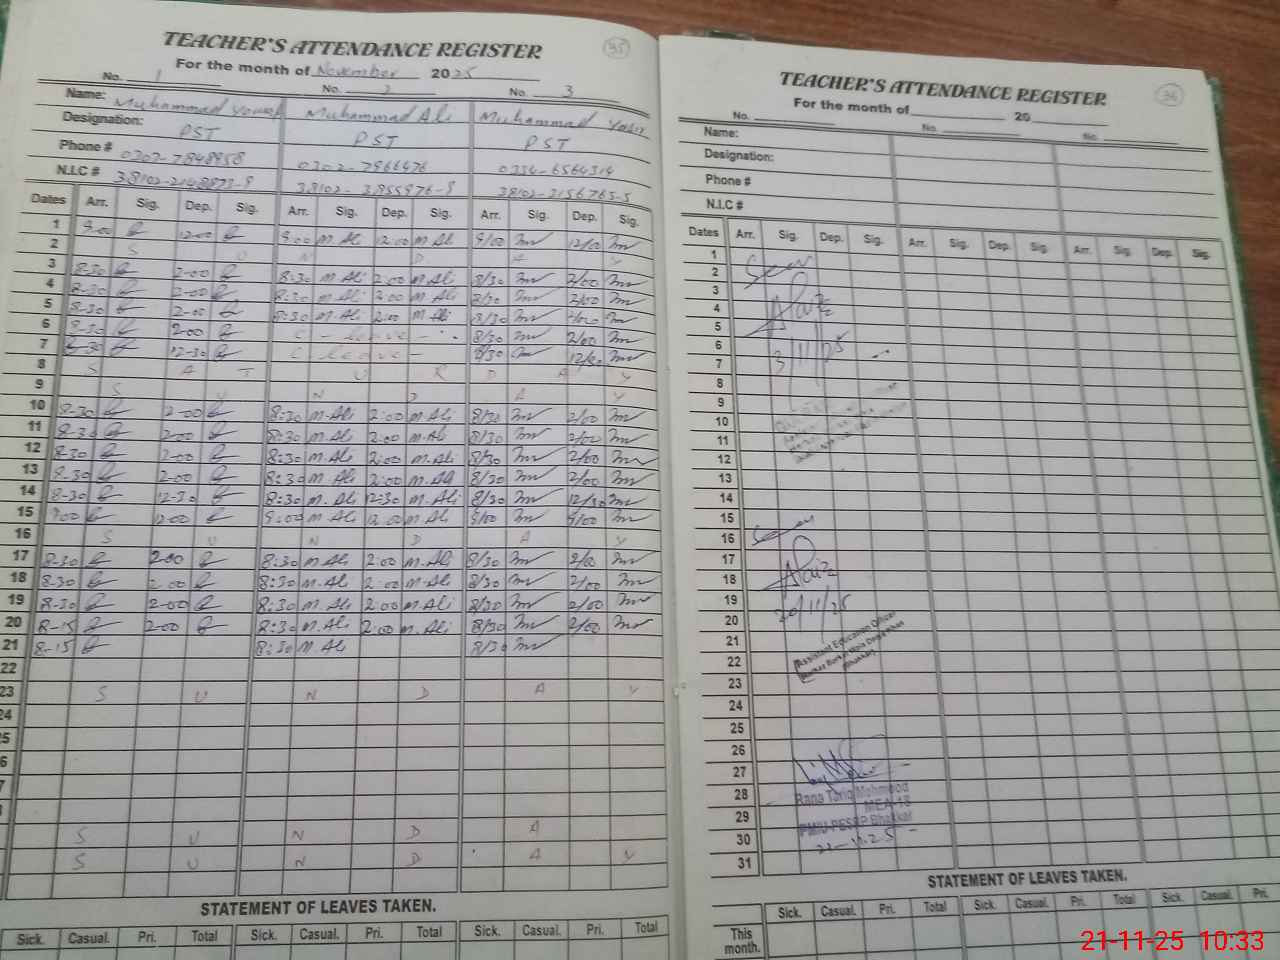 TEACHER'S ATTENDANCE REGISTER 35
For the month of November 2025
No. 1 No. 2 No. 3
Name: Muhammad Muhammad Ali Muhammad Yasir
Designation: PST PST PST
Phone # 0302-7848958 0302-7966476 0334-6564314
N.I.C # 38102-2148873-9 38102-3955976-9 38102-3156765-5
Dates Arr. Sig. Dep. Sig. Arr. Sig. Dep. Sig. Arr. Sig. Dep. Sig.
1 9-00 12-00 9:00 M.Ali 12:00 M.Ali 9/00 12/00
2 S U N D A Y
3 8-30 2-00 8:30 M.Ali 2:00 M.Ali 8/30 2/00
4 8-30 2-00 8:30 M.Ali 2:00 M.Ali 8/30 2/00
5 8-30 2-00 8:30 M.Ali 2:00 M.Ali 8/30 2/00
6 8-30 2-00 C - leave - 8/30 2/00
7 8-30 12-30 C leave - 8/30 12/30
8 S A T U R D A Y
9 S U N D A Y
10 8-30 2-00 8:30 M.Ali 2:00 M.Ali 8/30 2/00
11 8-30 2-00 8:30 M.Ali 2:00 M.Ali 8/30 2/00
12 8-30 2-00 8:30 M.Ali 2:00 M.Ali 8/30 2/00
13 8-30 2-00 8:30 M.Ali 2:00 M.Ali 8/30 2/00
14 8-30 12-30 8:30 M.Ali 12:30 M.Ali 8/30 12/30
15 9-00 12-00 9:00 M.Ali 12:00 M.Ali 9/00
16 S U N D A Y
17 8-30 2-00 8:30 M.Ali 2:00 M.Ali 8/30 2/00
18 8-30 2-00 8:30 M.Ali 2:00 M.Ali 8/30 2/00
19 8-30 2-00 8:30 M.Ali 2:00 M.Ali 8/30 2/00
20 8-15 2-00 8:30 M.Ali 2:00 M.Ali 8/30 2/00
21 8-15 8:30 M.Ali 8/30
22
23 S U N D A Y
24
5
6
7
S U N D A
S U N D A Y
STATEMENT OF LEAVES TAKEN.
Sick. Casual. Pri. Total Sick. Casual. Pri. Total Sick. Casual. Pri. Total
TEACHER'S ATTENDANCE REGISTER 36
For the month of 20
No. No. No.
Name:
Designation:
Phone #
N.I.C #
Dates Arr. Sig. Dep. Sig. Arr. Sig. Dep. Sig. Arr. Sig. Dep. Sig.
1
2
3
4
5
6
7 3/11/25
8
9
10
11
12
13
14
15
16
17
18
19
20 20/11/25
21 Assistant Education Officer
22
23
24
25
26
27
28 Rana Tariq Mehmood
29 MEA-18
30 PMIU PESRP Bhakkar
31
STATEMENT OF LEAVES TAKEN.
Sick. Casual. Pri. Total Sick. Casual. Pri. Total Sick. Casual. Pri.
This month.
21-11-25 10:33